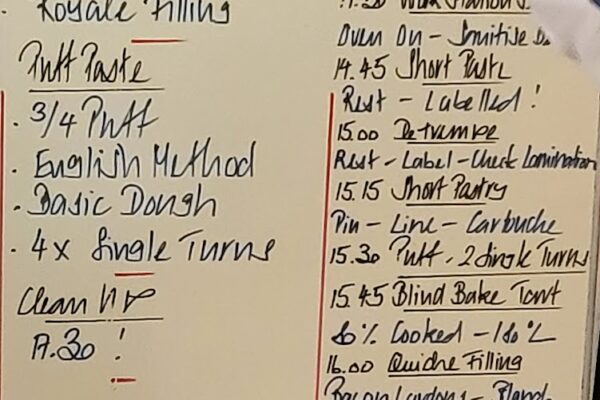 Royale Filling
Puff Paste
. 3/4 Puff
. English Method
. Basic Dough
. 4x Single Turns
Clean Up
17.30 !
Oven On - Smitise
14.45 Short Paste
Rest - Labelled !
15.00 Detrempe
Rest - Label - Check Lamination
15.15 Short Pastry
Pin - Line - Cartouche
15.30 Puff . 2 Single Turns
15.45 Blind Bake Tart
80% Cooked - 180°C
16.00 Quiche Filling
Bacon Lardons - Bland